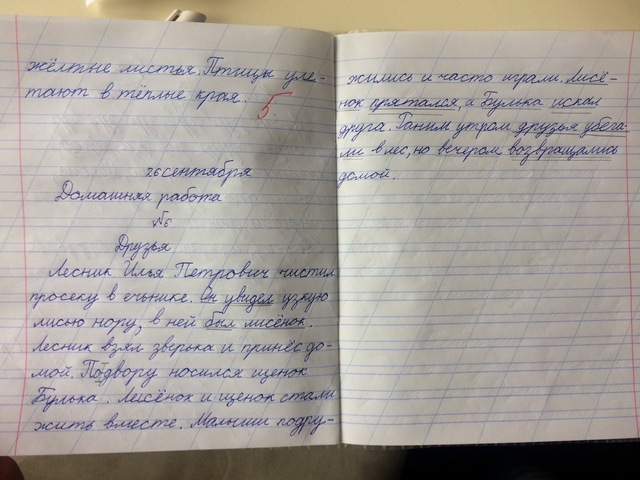 жёлтые листья. Птицы уле-
тают в тёплые края. 5
26 сентября
Домашняя работа
№6
Друзья
Лесник Илья Петрович чистил
просеку в ельнике. Он увидел узкую
лисью нору, в ней был лисёнок.
Лесник взял зверька и принёс до-
мой. По двору носился щенок
Булька. Лисёнок и щенок стали
жить вместе. Малыши подру-
жились и часто играли. Лисё-
нок прятался, а Булька искал
друга. Ранним утром друзья убега-
ли в лес, но вечером возвращались
домой.